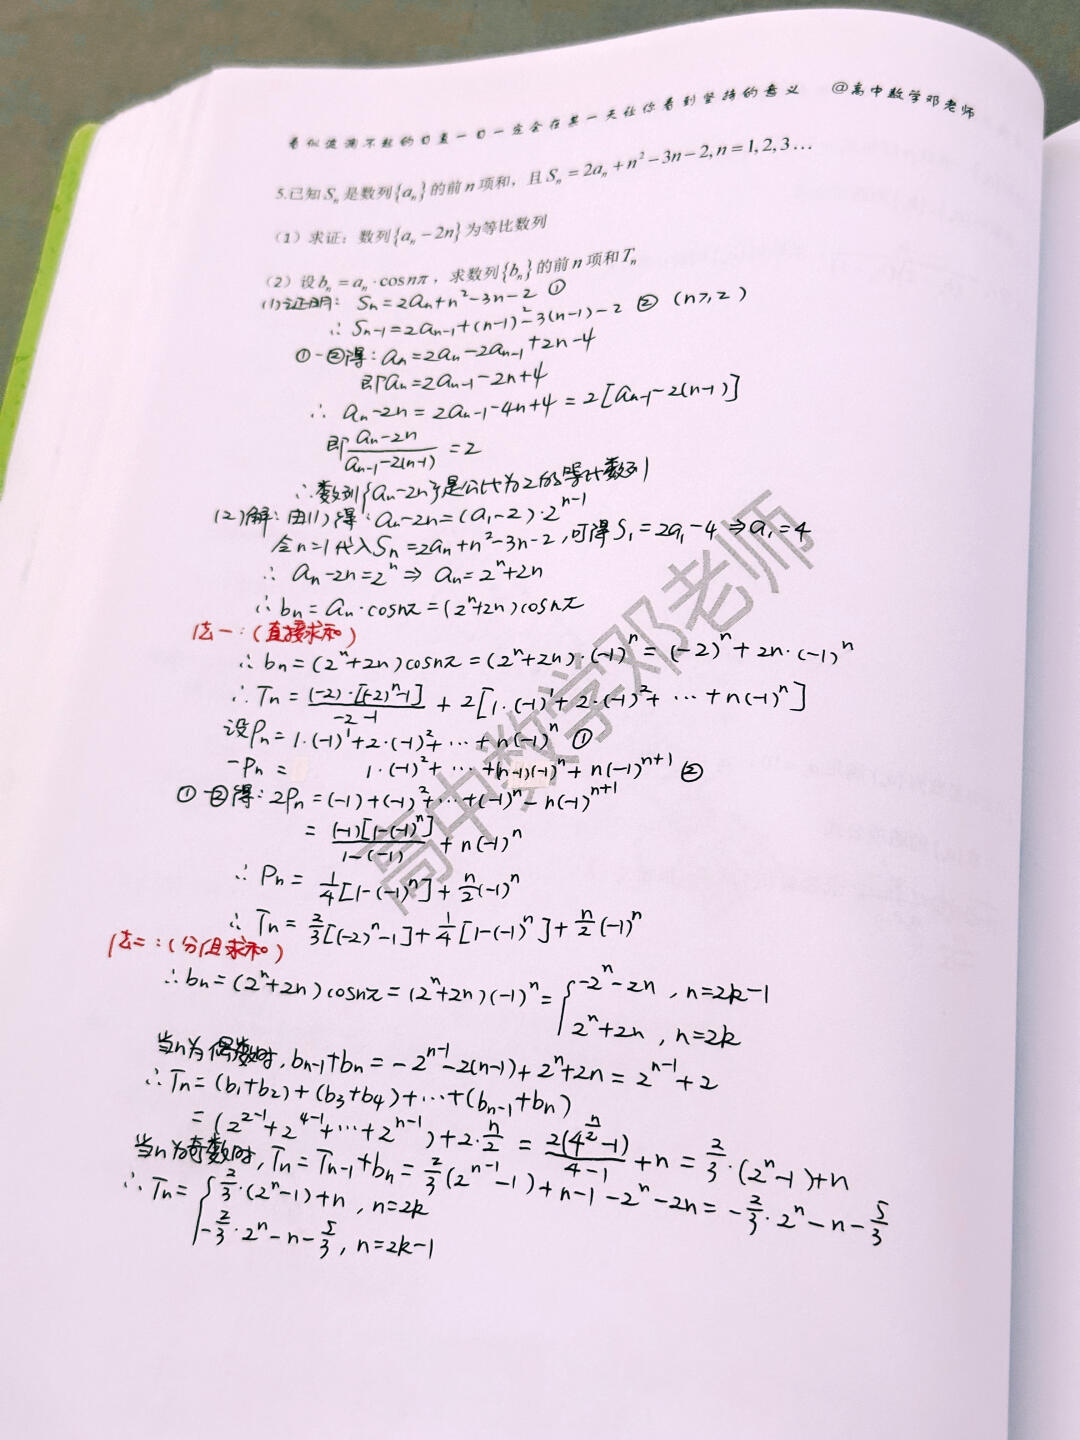 看似波澜不惊的日复一日一定会在某一天让你看到坚持的意义 @高中数学邓老师
5.已知Sₙ是数列{aₙ}的前n项和，且Sₙ=2aₙ+n²−3n−2,n=1,2,3…
（1）求证：数列{aₙ−2n}为等比数列
（2）设bₙ=aₙ·cosnπ，求数列{bₙ}的前n项和Tₙ
(1)证明: Sₙ=2aₙ+n²−3n−2 ①
∴ Sₙ₋₁=2aₙ₋₁+(n−1)²−3(n−1)−2 ② (n≥2)
①−②得: aₙ=2aₙ−2aₙ₋₁+2n−4
即aₙ=2aₙ₋₁−2n+4
∴ aₙ−2n=2aₙ₋₁−4n+4=2[aₙ₋₁−2(n−1)]
即 (aₙ−2n)/(aₙ₋₁−2(n−1)) =2
∴数列{aₙ−2n}是公比为2的等比数列
(2)解: 由(1)得: aₙ−2n=(a₁−2)·2ⁿ⁻¹
令n=1代入Sₙ=2aₙ+n²−3n−2,可得S₁=2a₁−4⇒a₁=4
∴ aₙ−2n=2ⁿ⇒ aₙ=2ⁿ+2n
∴bₙ=aₙ·cosnπ=(2ⁿ+2n)cosnπ
法一:(直接求和)
∴bₙ=(2ⁿ+2n)cosnπ=(2ⁿ+2n)·(−1)ⁿ=(−2)ⁿ+2n·(−1)ⁿ
∴Tₙ= (−2)·[(−2)ⁿ−1]/(−2−1) + 2[1·(−1)¹+2·(−1)²+…+n(−1)ⁿ]
设Pₙ=1·(−1)¹+2·(−1)²+…+n(−1)ⁿ ①
−Pₙ= 1·(−1)²+…+(n−1)(−1)ⁿ+n(−1)ⁿ⁺¹ ②
①−②得: 2Pₙ=(−1)+(−1)²+…+(−1)ⁿ−n(−1)ⁿ⁺¹
= (−1)[1−(−1)ⁿ]/(1−(−1)) +n(−1)ⁿ
∴ Pₙ= 1/4[1−(−1)ⁿ]+n/2(−1)ⁿ
∴ Tₙ= 2/3[(−2)ⁿ−1]+1/4[1−(−1)ⁿ]+n/2(−1)ⁿ
法二:(分组求和)
∴bₙ=(2ⁿ+2n)cosnπ=(2ⁿ+2n)(−1)ⁿ={−2ⁿ−2n , n=2k−1
2ⁿ+2n , n=2k
当n为偶数时,bₙ₋₁+bₙ=−2ⁿ⁻¹−2(n−1)+2ⁿ+2n=2ⁿ⁻¹+2
∴Tₙ=(b₁+b₂)+(b₃+b₄)+…+(bₙ₋₁+bₙ)
=(2²⁻¹+2⁴⁻¹+…+2ⁿ⁻¹)+2·n/2 = 2(4^(n/2)−1)/(4−1) +n=2/3·(2ⁿ−1)+n
当n为奇数时,Tₙ=Tₙ₋₁+bₙ=2/3(2ⁿ⁻¹−1)+n−1−2ⁿ−2n=−2/3·2ⁿ−n−5/3
∴Tₙ={2/3·(2ⁿ−1)+n , n=2k
−2/3·2ⁿ−n−5/3, n=2k−1
高中数学邓老师